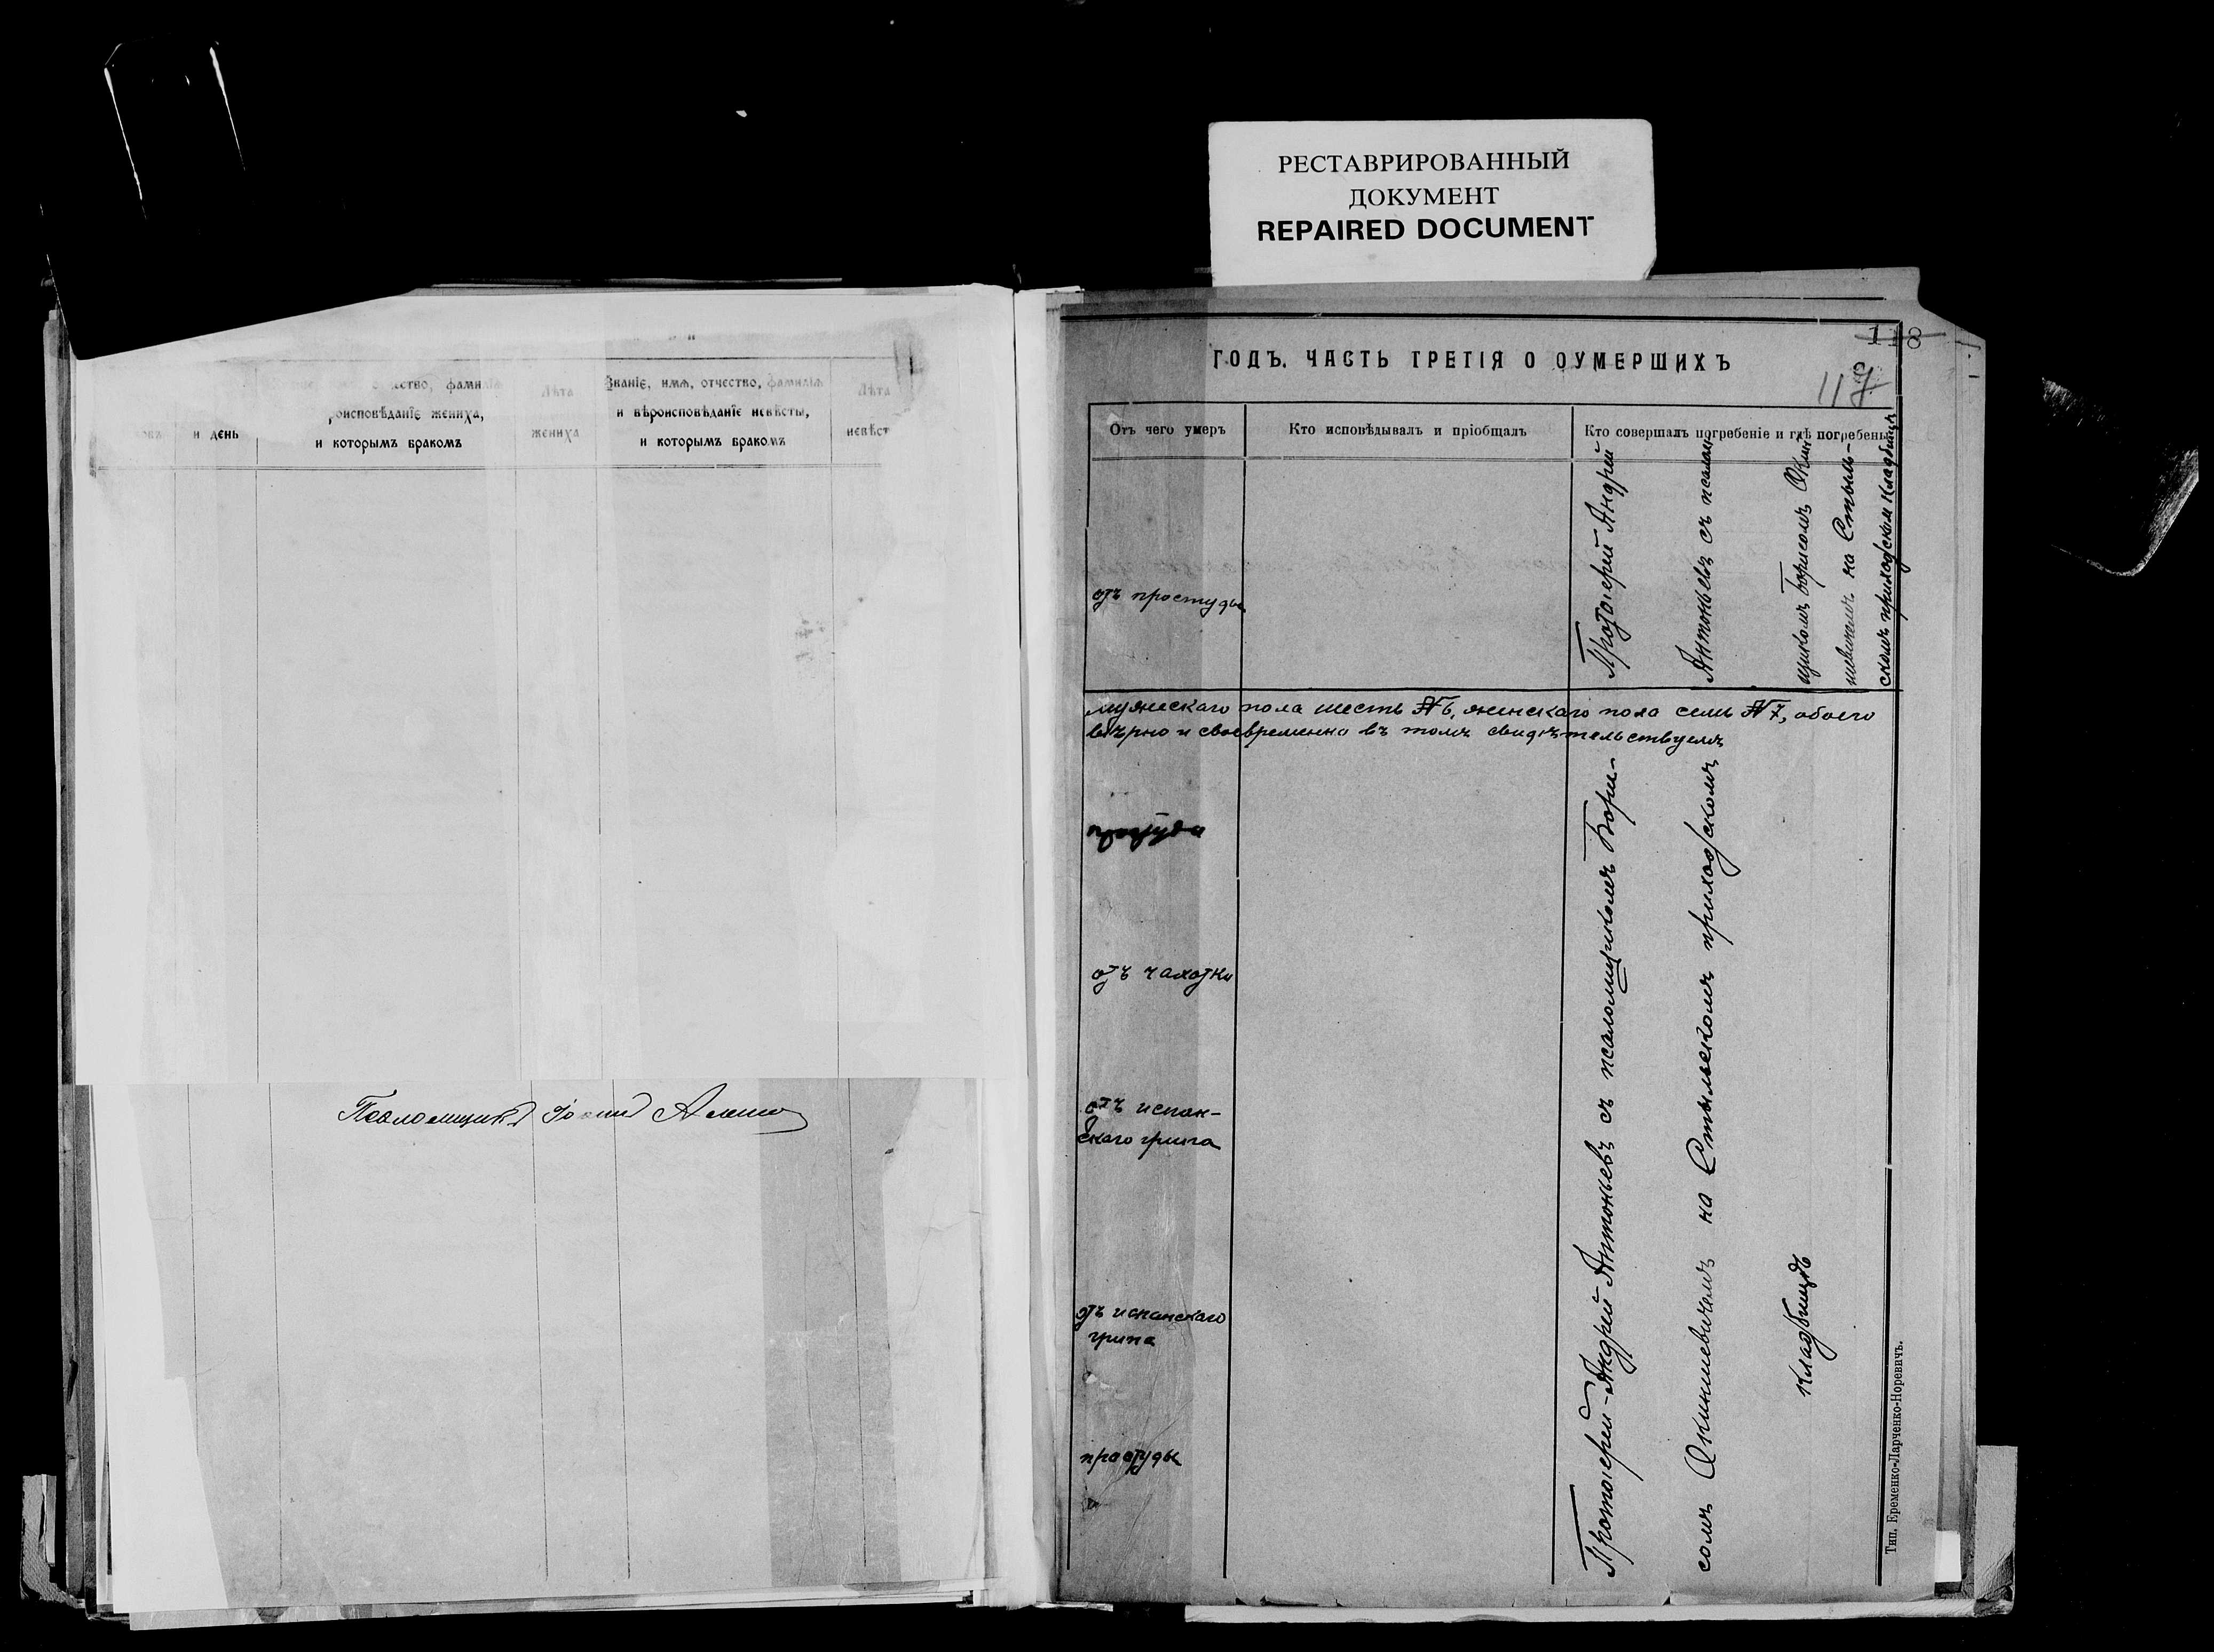 РЕСТАВРИРОВАННЫЙ
ДОКУМЕНТ
REPAIRED DOCUMENT
и день
фамилія
роисповѣданіе жениха,
и которымъ бракомъ
Лѣта
жениха
Званіе, имя, отчество, фамилія
и вѣроисповѣданіе невѣсты,
и которымъ бракомъ
Лѣта
невѣст
Псаломщикъ
118
ГОДЪ. ЧАСТЬ ТРЕТІЯ О ОУМЕРШИХЪ
117
Отъ чего умеръ
Кто исповѣдывалъ и пріобщалъ
Кто совершалъ погребеніе и гдѣ погребены
отъ простуды
Протоіерей Андрей
Антоньевъ съ псалом
щикомъ Борисомъ Окин
шевичемъ на Стыль-
скомъ приходскомъ кладбищѣ
мужескаго пола шесть №6, женскаго пола семь №7, обоего
вѣрно и своевременно въ томъ свидѣтельствуемъ
простуды
отъ чахотки
отъ испан-
скаго грипа
отъ испанскаго
грипа
простуды
Протоіерей Андрей Антоньевъ съ псаломщикомъ Бори-
сомъ Окиншевичемъ на Стыльскомъ приходскомъ
кладбищѣ
Тип. Еременко-Ларченко-Норевичъ.